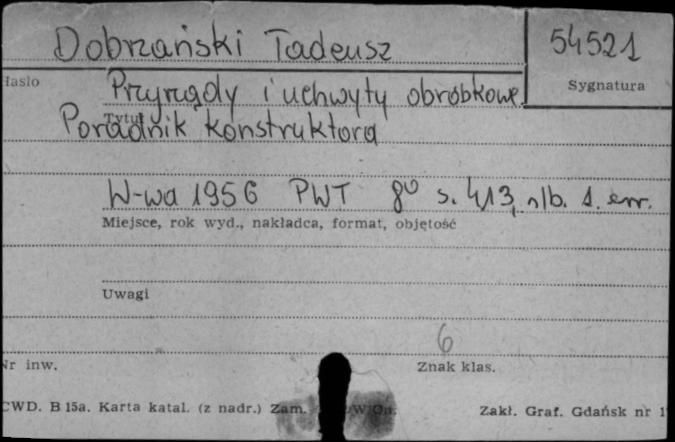 Dobrzański Tadeusz
54521
Hasło
Sygnatura
Przyrządy i uchwyty obróbkowe.
Tytuł
Poradnik konstruktora
W-wa 1956 PWT 8º s. 413, nlb. 1. err.
Miejsce, rok wyd., nakładca, format, objętość
Uwagi
6
Nr inw.
Znak klas.
CWD. B 15a. Karta katal. (z nadr.) Zam.
Zakł. Graf. Gdańsk nr 1